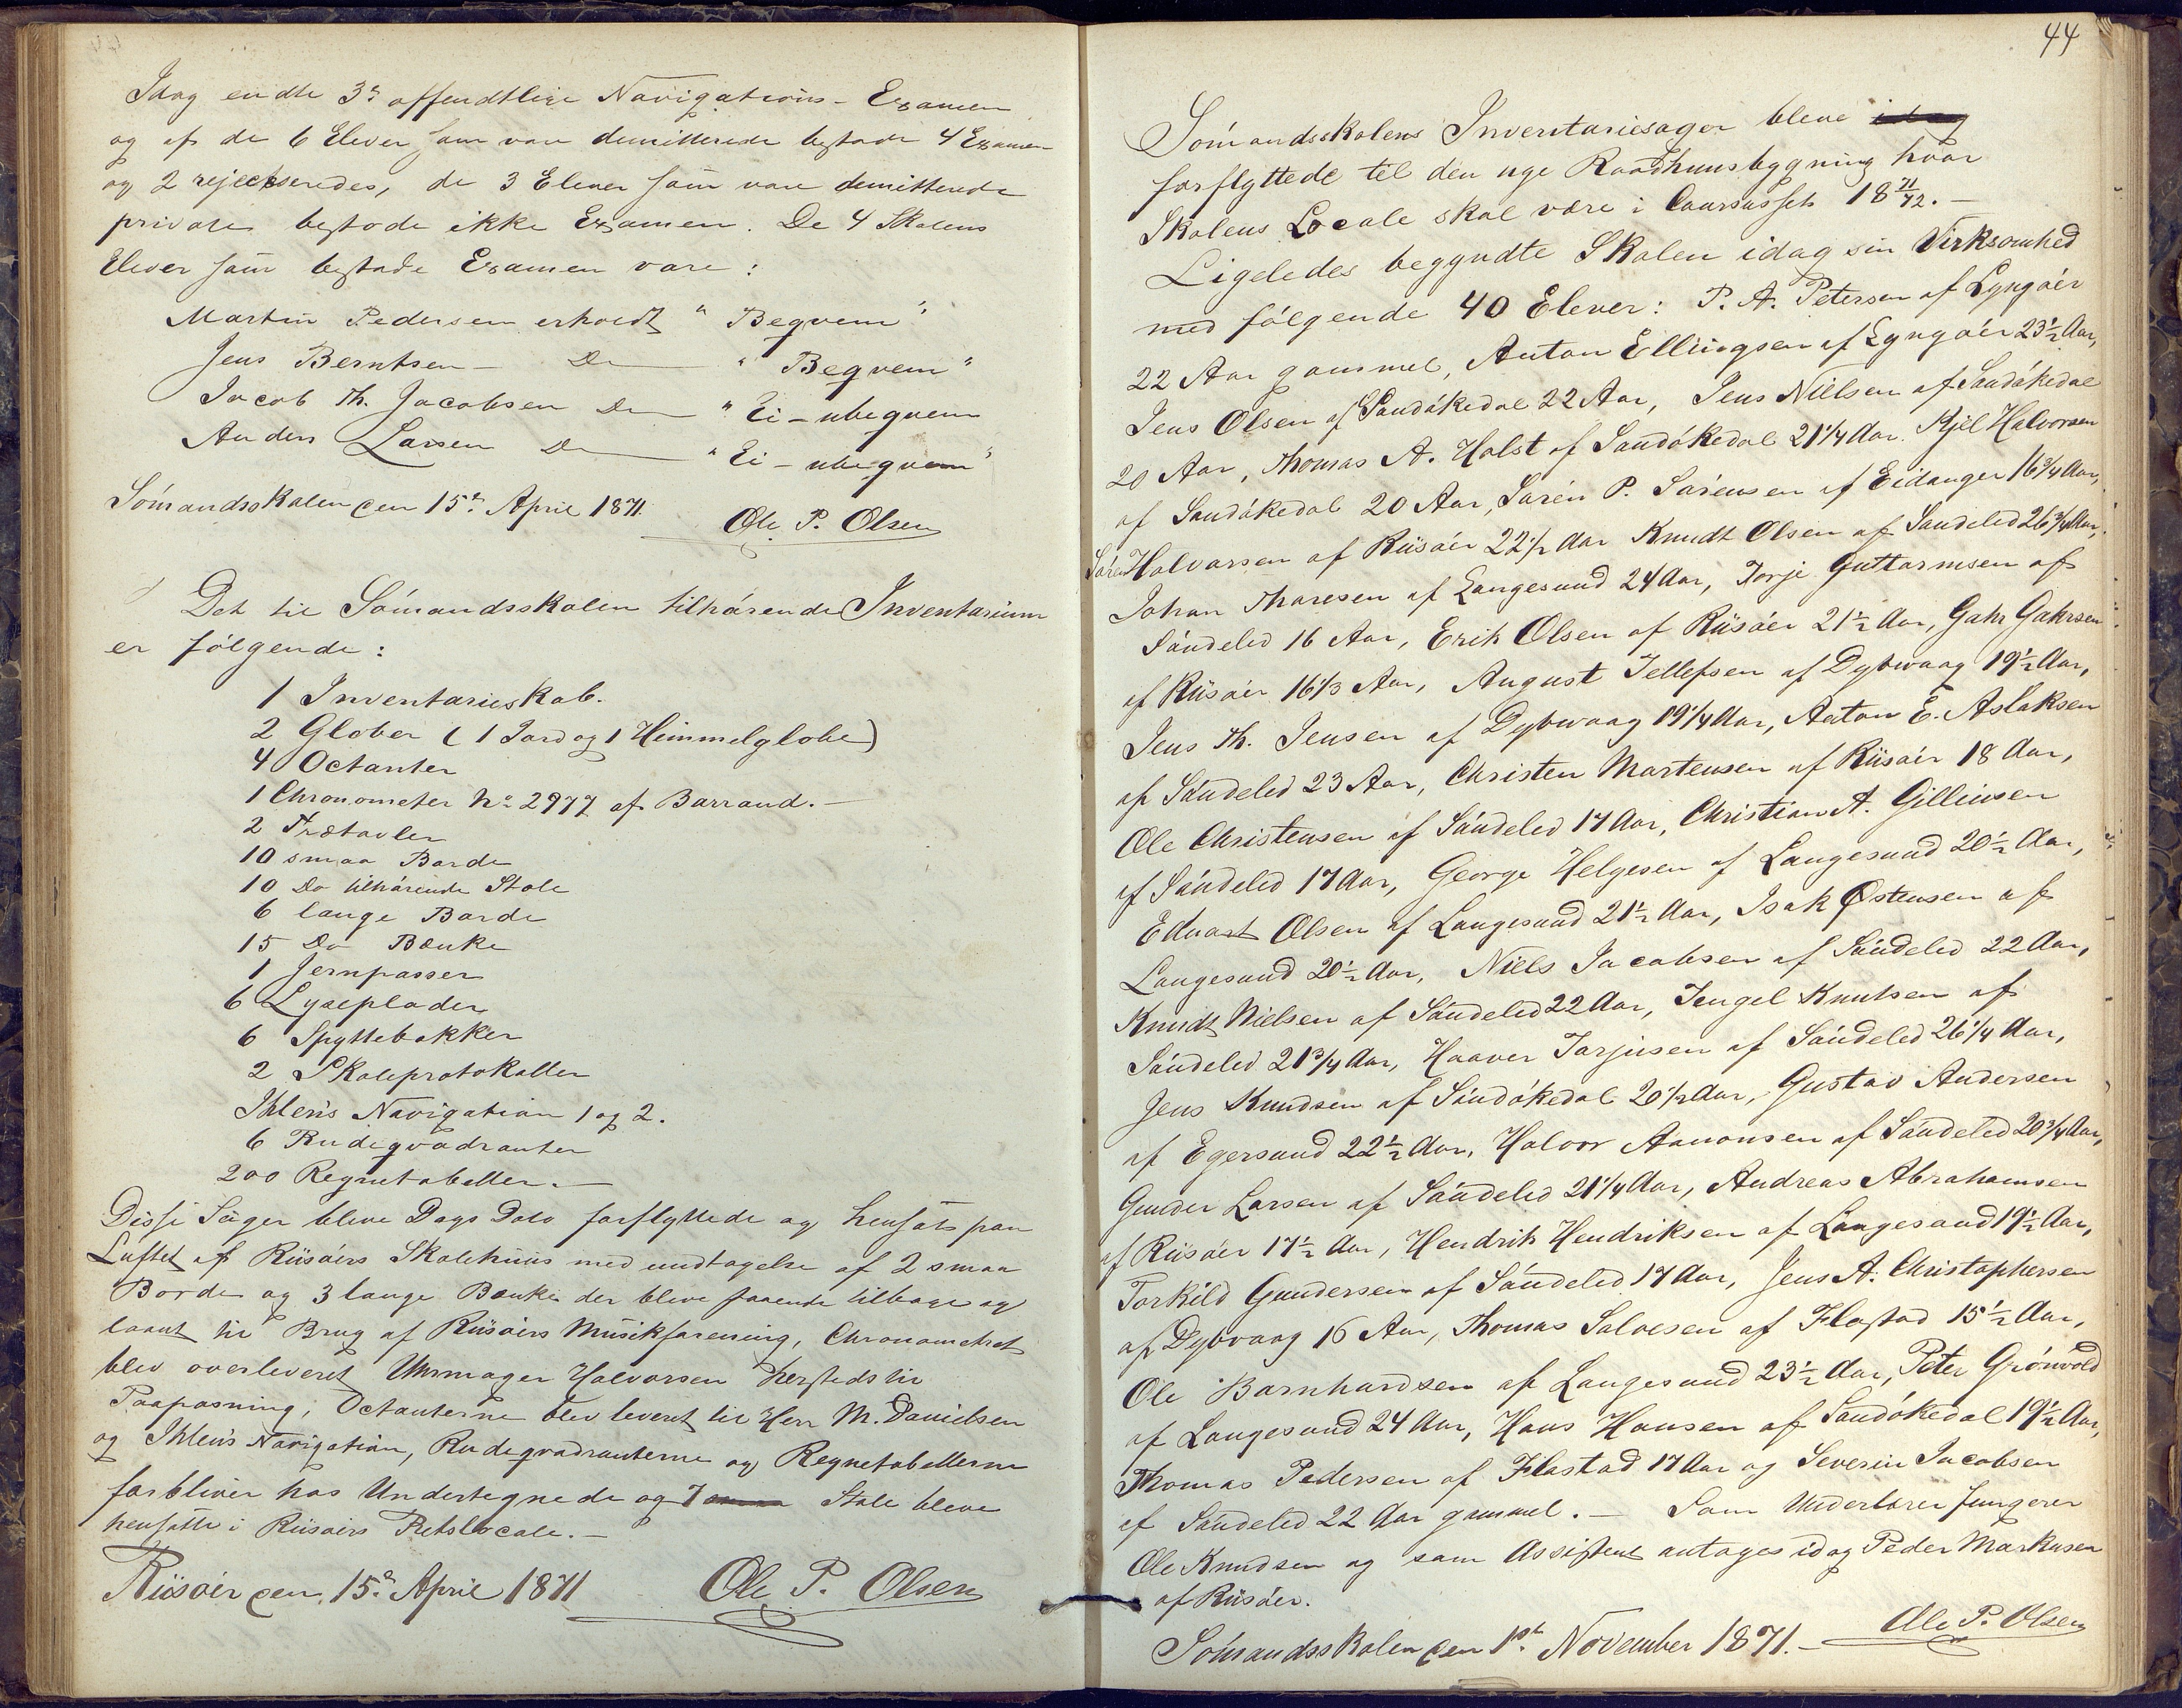 Idag endte 3de offendtlige Navigations-Examen
og af de 6 Elever som vare demitterede bestode 4 Examen
og 2 rejecteredes, de 3 Elever som vare demitterede
privates bestode ikke Examen. De 4 Skolens
Elever som bestode Examen vare:
Martin Pedersen erholdt "Beqvem"
Jens Berntsen – Do "Beqvem"
Jacob Th. Jacobsen Do "Ei-ubeqvem
Anders Larsen Do "Ei-ubeqvem"
Sómandsskolen den 15de April 1871.
Ole P. Olsen
Det til Sómandsskolen tilhórende Inventarium
er fólgende:
1 Inventarieskab.
2 Glober (1 Jord og 1 Himmelglobe)
4 Octanter
1 Chronometer No 2977 af Barraud.–
2 Trætavler
10 smaa Borde
10 Do tilhórende Stole
6 lange Borde
15 Do Bænke
1 Jernpasser
6 Lyseplader
6 Spyttebakker
2 Skoleprotokoller
Ihlen's Navigation 1 og 2.
6 Rudeqvadranter
200 Regnetabeller.–
Disse Sager bleve Dags Dato forflyttede og hensat paa
Luftet af Riisóers Skolehuus med undtagelse af 2 smaa
Borde og 3 lange Bænke der bleve staaende tilbage og
laant til Brug af Riisóers Musikforening, Chronometret
blev overleveret Uhrmager Halvorsen hersteds til
Paapasning, Octanterne blev leveret til Herr M. Danielsen
og Ihlen's Navigation, Rudeqvadranterne og Regnetabellerne
forbliver hos Undertegnede og 7 Stole bleve
hensatte i Riisóers Retslocale.–
Riisóer den 15de April 1871
Ole P. Olsen
44
Sómandsskolens Inventariesager bleve idag
forflyttede til den nye Raadhuusbygning hvor
Skolens Locale skal være i Coursusset 18 71/72.–
Ligeledes begyndte Skolen idag sin Virksomhed
med fólgende 40 Elever: P. A. Petersen af Lyngóer
22 Aar gammel, Anton Ellingsen af Lyngóer 23½ Aar,
Jens Olsen af Sandókedal 22 Aar, Jens Nilsen af Sandókedal
20 Aar, Thomas A. Holst af Sandókedal 21¼ Aar. Kjel Halvorsen
af Sandókedal 20 Aar, Sóren P. Sórensen af Eidanger 16¾ Aar,
Sóren Halvorsen af Riisóer 22½ Aar Knudt Olsen af Sandeled 26¾ Aar,
Johan Thoresen af Langesund 24 Aar, Torje Guttormsen af
Sóndeled 16 Aar, Erik Olsen af Riisóer 21½ Aar, Gahr Gahrsen
af Riisóer 16⅓ Aar, August Tellefsen af Dybvaag 19½ Aar,
Jens Th. Jensen af Dybvaag 19¼ Aar, Anton E. Aslaksen
af Sóndeled 23 Aar, Christen Mortensen af Riisóer 18 Aar,
Ole Christensen af Sóndeled 17 Aar, Christian A. Gilliusen
af Sóndeled 17 Aar, George Helgesen af Langesund 20½ Aar,
Edvart Olsen af Langesund 21½ Aar, Isak Østensen af
Langesund 20½ Aar, Niels Jacobsen af Sóndeled 22 Aar,
Knudt Nielsen af Sóndeled 22 Aar, Tengel Knutsen af
Sóndeled 21¾ Aar, Haaver Torjusen af Sóndeled 26¼ Aar,
Jens Knudsen af Sandókedal 20½ Aar, Gustav Andersen
af Egersund 22½ Aar, Halvor Aanonsen af Sóndeled 20¾ Aar,
Gunder Larsen af Sóndeled 21¼ Aar, Andreas Abrahamsen
af Riisóer 17½ Aar, Hendrik Hendriksen af Langesund 19½ Aar,
Torkild Gundersen af Sóndeled 17 Aar, Jens A. Christophersen
af Dybvaag 16 Aar, Thomas Salvesen af Flostad 15½ Aar,
Ole Barnhardsen af Langesund 23½ Aar, Peter Grónvold
af Langesund 24 Aar, Hans Hansen af Sandókedal 19½ Aar,
Thomas Pedersen af Flostad 17 Aar og Severin Jacobsen
af Sóndeled 22 Aar gammel.– Som Underlærer fungerer
Ole Knudsen og som Assistent antages idag Peder Markusen
af Riisóer.
Sómandsskolen den 1st November 1871.–
Ole P. Olsen